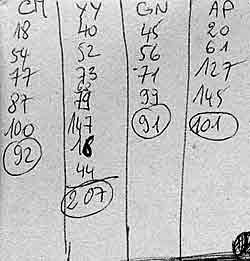 CM YY GN AP
18 40 45 20
54 52 56 61
77 73 71 127
87 79 99 145
100 147 91 101
92 18
44
207